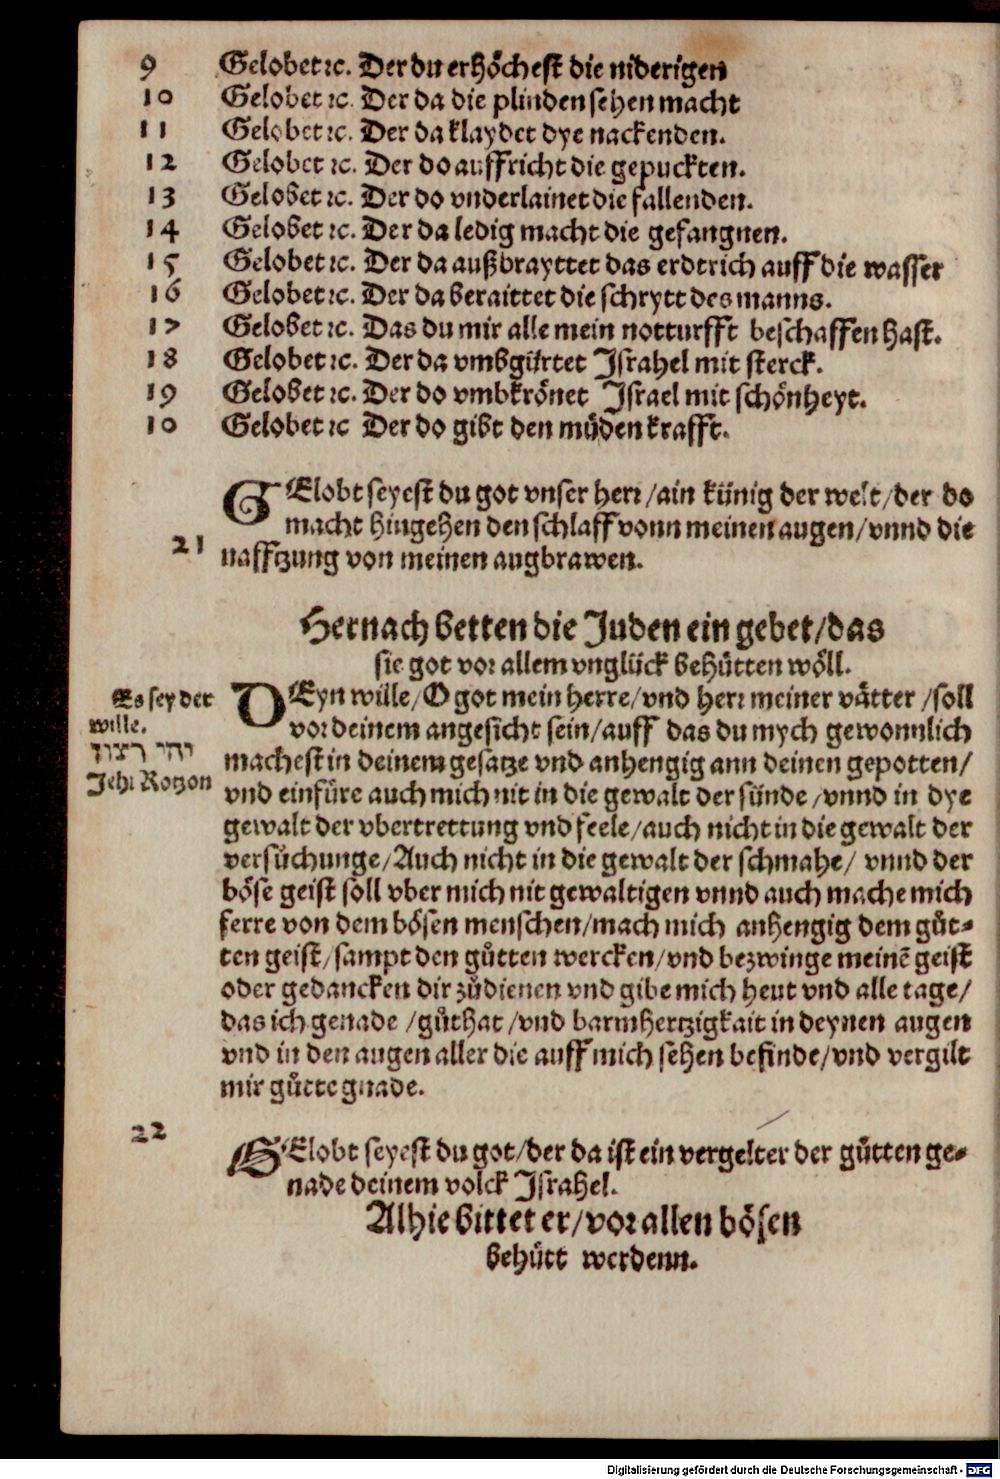 9 Gelobet ꝛc. Der du erhöchest die niderigen
10 Gelobet ꝛc. Der da die plinden sehen macht
11 Gelobet ꝛc. Der da klaydet dye nackenden.
12 Gelobet ꝛc. Der do auffricht die gepuckten.
13 Gelobet ꝛc. Der do vnderlainet die fallenden.
14 Gelobet ꝛc. Der da ledig macht die gefangnen.
15 Gelobet ꝛc. Der da außbrayttet das erdtrich auff die wasser
16 Gelobet ꝛc. Der da beraittet die schrytt des manns.
17 Gelobet ꝛc. Das du mir alle mein notturfft beschaffen hast.
18 Gelobet ꝛc. Der da vmbgürtet Israhel mit sterck.
19 Gelobet ꝛc. Der do vmbkrönet Israel mit schönheyt.
10 Gelobet ꝛc Der do gibt den müden krafft.
GElobt seyest du got vnser herr/ain künig der welt/der do
macht hingehen den schlaff vonn meinen augen/vnnd die
21 nafftzung von meinen augbrawen.
Hernach betten die Juden ein gebet/das
sie got vor allem vnglück behütten wöll.
Es sey der
wille.
יהי רצון
Jehi Rotzon
DEyn wille/O got mein herre/vnd herr meiner vätter/soll
vor deinem angesicht sein/auff das du mych gewonnlich
machest in deinem gesatze vnd anhengig ann deinen gepotten/
vnd einfüre auch mich nit in die gewalt der sünde/vnnd in dye
gewalt der vbertrettung vnd feele/auch nicht in die gewalt der
versůchunge/Auch nicht in die gewalt der schmahe/ vnnd der
böse geist soll vber mich nit gewaltigen vnnd auch mache mich
ferre von dem bösen menschen/mach mich anhengig dem gůt-
ten geist/sampt den gůtten wercken/vnd bezwinge meinē geist
oder gedancken dir zůdienen vnd gibe mich heut vnd alle tage/
das ich genade/gůthat/vnd barmhertzigkait in deynen augen
vnd in den augen aller die auff mich sehen befinde/vnd vergilt
mir gůtte gnade.
22
GElobt seyest du got/der da ist ein vergelter der gůtten ge-
nade deinem volck Israhel.
Alhie bittet er/vor allen bösen
behütt werdenn.
Digitalisierung gefördert durch die Deutsche Forschungsgemeinschaft - DFG